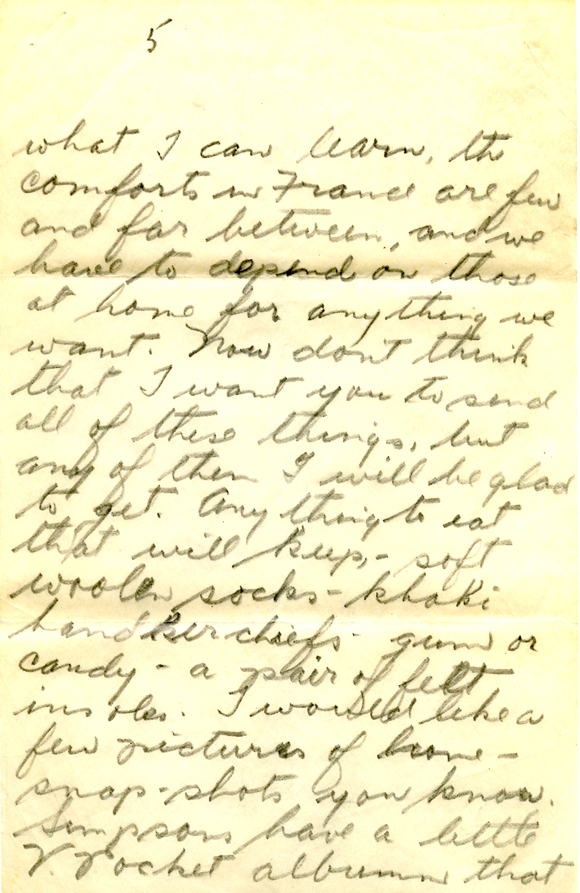 5
what I can learn, the
comforts in France are few
and far between, and we
have to depend on those
at home for anything we
want. Now don't think
that I want you to send
all of these things, but
any of them I will be glad
to get. Any thing to eat
that will keep,- soft
woolen socks - khaki
handkerchiefs - gum or
candy - a pair of felt
insoles. I would like a
few pictures of home -
snap-shots you know.
Simpsons have a little
V. Pocket album that